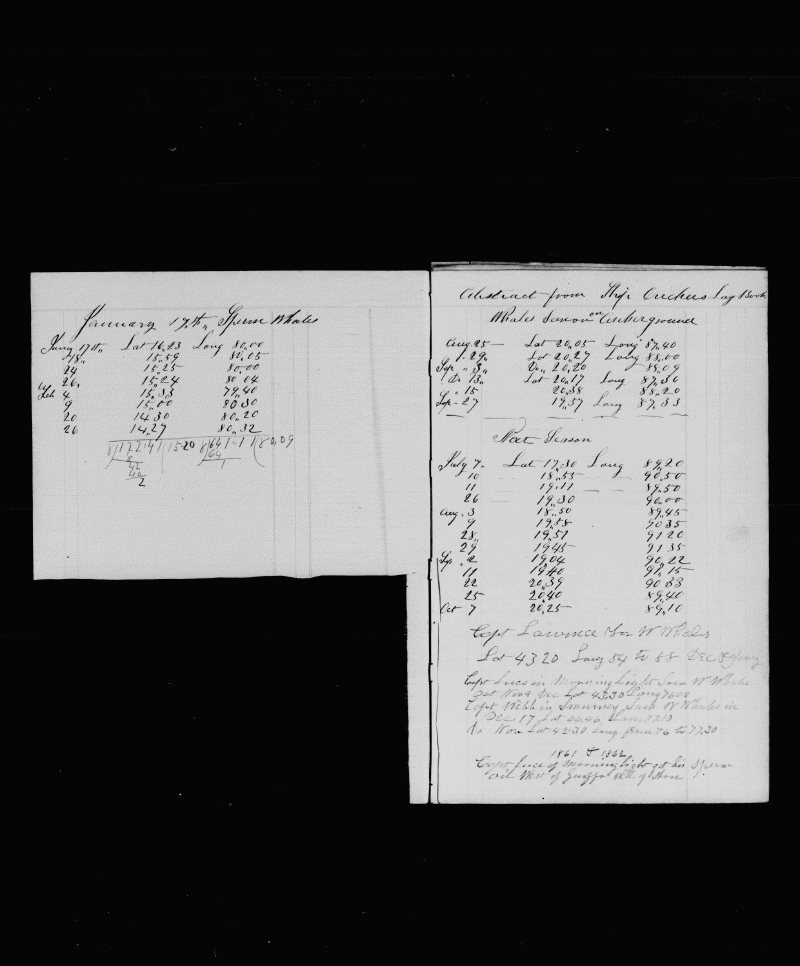 January 17,th,, Sperm Whales
Jany 17th,, Lat 16,23 Long 80,00
18,, 15,59 80,05
24 15,25 80,00
26,, 15,24 80 04
Feb 4 15,33 79,40
9 15,00 80 30
20 14,30 80,20
26 14,27 80,32
8)122,41(1520 8)641,11(80,09
8 64
42 1
40
2
Abstract from Ship Archers Log Book
Whales Seen on Archerground
Aug. 25 — Lat 20,05 Long 87,40
29,, Lat 20,27 Long 88,00
Sep. ,, 3,, Do,, 20,20 88,09
Do 13,, Lat 20,17 Long 87,36
,, 15 20,38 88,20
Sep - 27 19,57 Long 87,33
Next Season
July 7,, Lat 17,30 Long 89,20
10 18,55 90,50
11 19,11 89,50
26 19,30 90,00
Aug. 3 18,50 89,45
9 19,58 90 35
28,, 19,51 91 20
29 19 45 91 35
Sep. ,, 2 19,04 90,22
11 19 40 91,15
22 20,39 90 33
25 20,40 89,40
Oct 7 20,25 89,10
Capt Lawrence Saw W Whales
Lat 43 20 Long 84 to 88 Dec & Jany
Capt Luce in Morning Light Saw W Whales
Oct Nov & Dec Lat 4330 Long 7600
Capt Webb in Saw W Whales in
Dec 17 Lat 44,46, Long 7713
do Nov Lat 4230 Long from 76 to 77,30
1861 & 1862
Capt Luce of Morninglight got his Sperm
oil West of of Shore